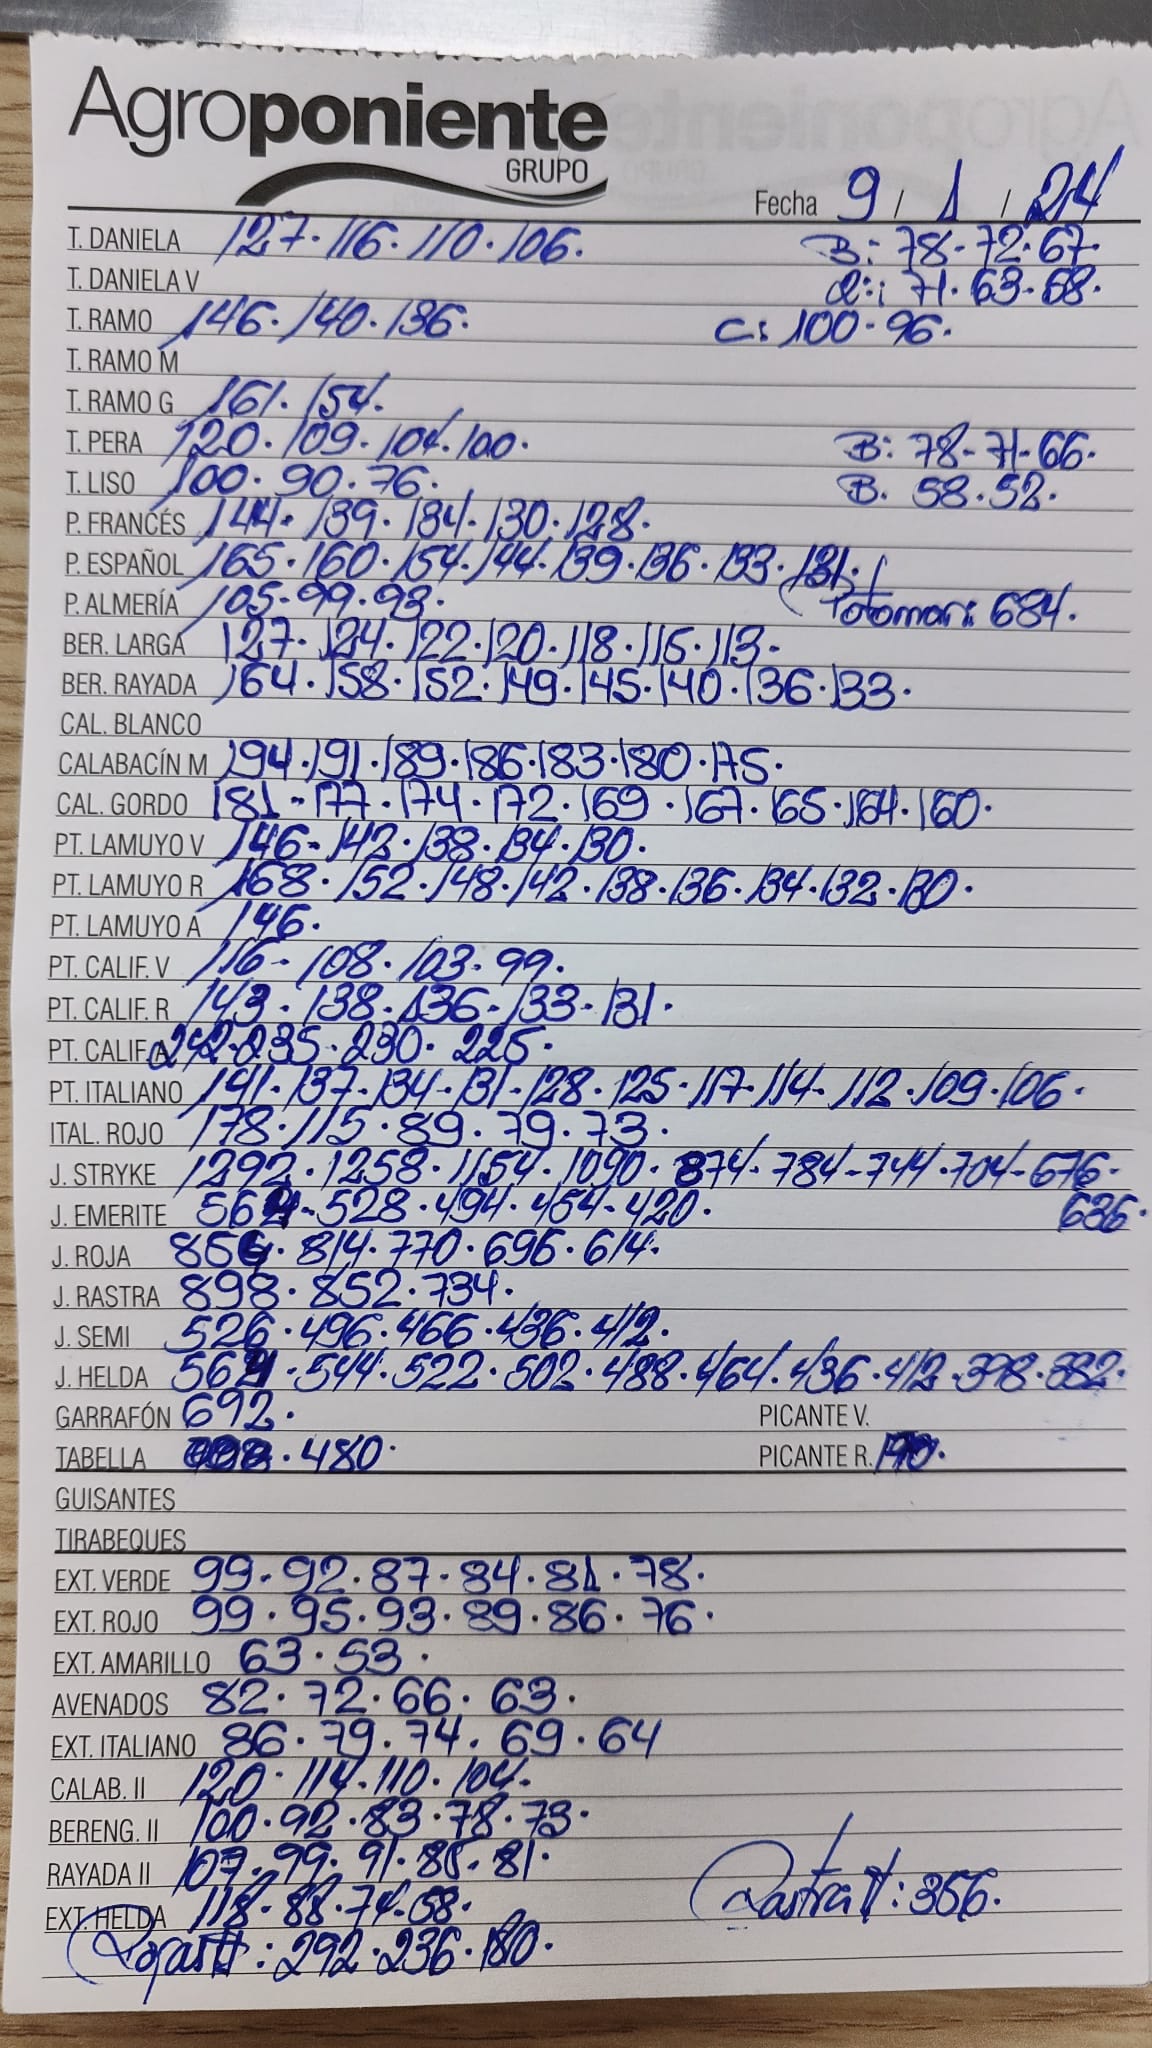 Agroponiente
GRUPO
Fecha 9 / 1 / 24
T. DANIELA 127. 116. 110. 106. B: 78-72.67.
T. DANIELA V R: 71. 63-58.
T. RAMO 146. 140. 136. C: 100-96.
T. RAMO M
T. RAMO G 161. 154.
T. PERA 120. 109. 104. 100. B: 78-71-66.
T. LISO 100. 90. 76. B. 58.52.
P. FRANCÉS 144. 139. 134. 130. 128.
P. ESPAÑOL 165. 160. 154. 144. 139. 136. 133. 131.
P. ALMERÍA 105-99.93. 684.
BER. LARGA 127. 124. 122. 120. 118. 115. 113.
BER. RAYADA 164. 158. 152. 149. 145. 140. 136. 133.
CAL. BLANCO
CALABACÍN M 194. 191. 189. 186. 183. 180. 175.
CAL. GORDO 181-177. 174. 172. 169. 167. 165. 164. 160.
PT. LAMUYO V 146-142. 138. 134. 130.
PT. LAMUYO R 168. 152. 148. 142. 138. 136. 134. 132. 130.
PT. LAMUYO A 146.
PT. CALIF. V 116-108. 103-99.
PT. CALIF. R 143. 138. 136-133-131.
PT. CALIF. A 242-235. 230. 225.
PT. ITALIANO 141. 137-134-131-128. 125. 117-114-112. 109. 106.
ITAL. ROJO 178. 115. 89. 79. 73.
J. STRYKE 1292. 1258. 1154. 1090. 874-784-744. 704-676.
J. EMERITE 564-528. 494. 454-420. 636.
J. ROJA 856. 814. 770. 696. 614.
J. RASTRA 898. 852. 734.
J. SEMI 526. 496. 466. 436. 412.
J. HELDA 564. 544. 522. 502. 488. 464. 436. 412. 398. 382.
GARRAFÓN 692. PICANTE V.
TABELLA 480. PICANTE R.
GUISANTES
TIRABEQUES
EXT. VERDE 99-92. 87-84. 81. 78.
EXT. ROJO 99. 95. 93. 89. 86. 76.
EXT. AMARILLO 63. 53.
AVENADOS 82. 72. 66. 63.
EXT. ITALIANO 86. 79. 74. 69. 64
CALAB. II 120. 114. 110. 104.
BERENG. II 100. 92. 83. 78. 73.
RAYADA II 107. 99. 91. 85. 81.
EXT. HELDA 118-88. 74. 58. Rastra II: 356.
Rojas II: 292. 236. 180.